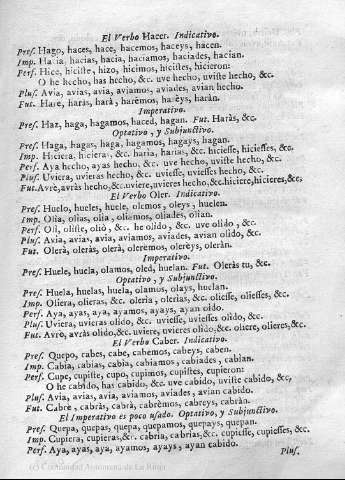 El Verbo Hacer. Indicativo.
Pres. Hago, haces, hace, hacemos, haceys, hacen.
Imp. Hacia, hacias, hacia, haciamos, haciades, hacian.
Perf. Hice, hiciste, hizo, hicimos, hicistes, hicieron:
O he hecho, has hecho, &c. uve hecho, uviste hecho, &c.
Plus. Avia, avias, avia, aviamos, aviades, avian hecho.
Fut. Harè, haràs, harà, harèmos, harèys, haràn.
Imperativo.
Pres. Haz, haga, hagamos, haced, hagan. Fut. Haràs, &c.
Optativo, y Subjunctivo.
Pres. Haga, hagas, haga, hagamos, hagays, hagan.
Imp. Hiciera, hicieras, &c. haria, harias, &c. hiciesse, hiciesses, &c.
Perf. Aya hecho, ayas hecho, &c. uve hecho, uviste hecho, &c.
Plus. Uviera, uvieras hecho, &c. uviesse, uviesses hecho, &c.
Fut. Avrè, avràs hecho, &c. uviere, uvieres hecho, &c. hiciere, hicieres, &c.
El Verbo Oler. Indicativo.
Pres. Huelo, hueles, huele, olemos, oleys, huelen.
Imp. Olia, olias, olia, oliamos, oliades, olian.
Perf. Oli, oliste, oliò, &c. he olido, &c. uve olido, &c.
Plus. Avia, avias, avia, aviamos, aviades, avian olido, &c.
Fut. Olerà, oleràs, olerà, olerèmos, olerèys, oleràn.
Imperativo.
Pres. Huele, huela, olamos, oled, huelan. Fut. Oleràs tu, &c.
Optativo, y Subjunctivo.
Pres. Huela, huelas, huela, olamos, olays, huelan.
Imp. Oliera, olieras, &c. oleria, olerias, &c. oliesse, oliesses, &c.
Perf. Aya, ayas, aya, ayamos, ayays, ayan olido.
Plus. Uviera, uvieras olido, &c. uviesse, uviesses olido, &c.
Fut. Avrò, avràs olido, &c. uviere, uvieres olido, &c. oliere, olieres, &c.
El Verbo Caber. Indicativo.
Pres. Quepo, cabes, cabe, cabemos, cabeys, caben.
Imp. Cabia, cabias, cabia, cabiamos, cabiades, cabian.
Perf. Cupe, cupiste, cupo, cupimos, cupistes, cupieron:
O he cabido, has cabido, &c. uve cabido, uviste cabido, &c,
Plus. Avia, avias, avia, aviamos, aviades, avian cabido.
Fut. Cabrè, cabràs, cabrà, cabrèmos, cabreys, cabràn.
El Imperativo es poco usado. Optativo, y Subjunctivo.
Pres. Quepa, quepas, quepa, quepamos, quepays, quepan.
Imp. Cupiera, cupieras, &c. cabria, cabrias, &c. cupiesse, cupiesses, &c.
Perf. Aya, ayas, aya, ayamos, ayays, ayan cabido.
Plus.
(c) Comunidad Autónoma de La Rioja